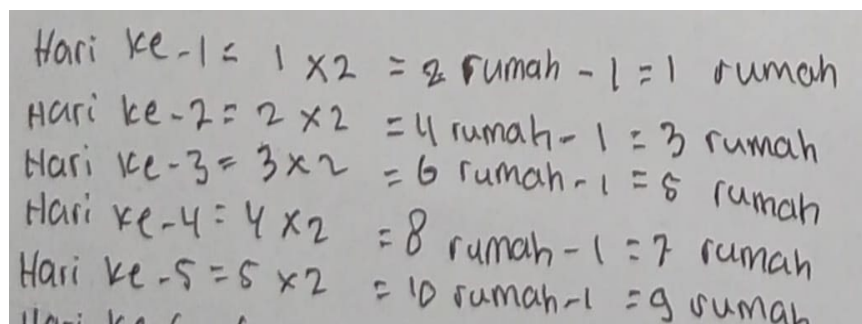 Hari ke-1 = 1 x 2 = 2 rumah - 1 = 1 rumah
Hari ke-2 = 2 x 2 = 4 rumah - 1 = 3 rumah
Hari ke-3 = 3 x 2 = 6 rumah - 1 = 5 rumah
Hari ke-4 = 4 x 2 = 8 rumah - 1 = 7 rumah
Hari ke-5 = 5 x 2 = 10 rumah - 1 = 9 rumah